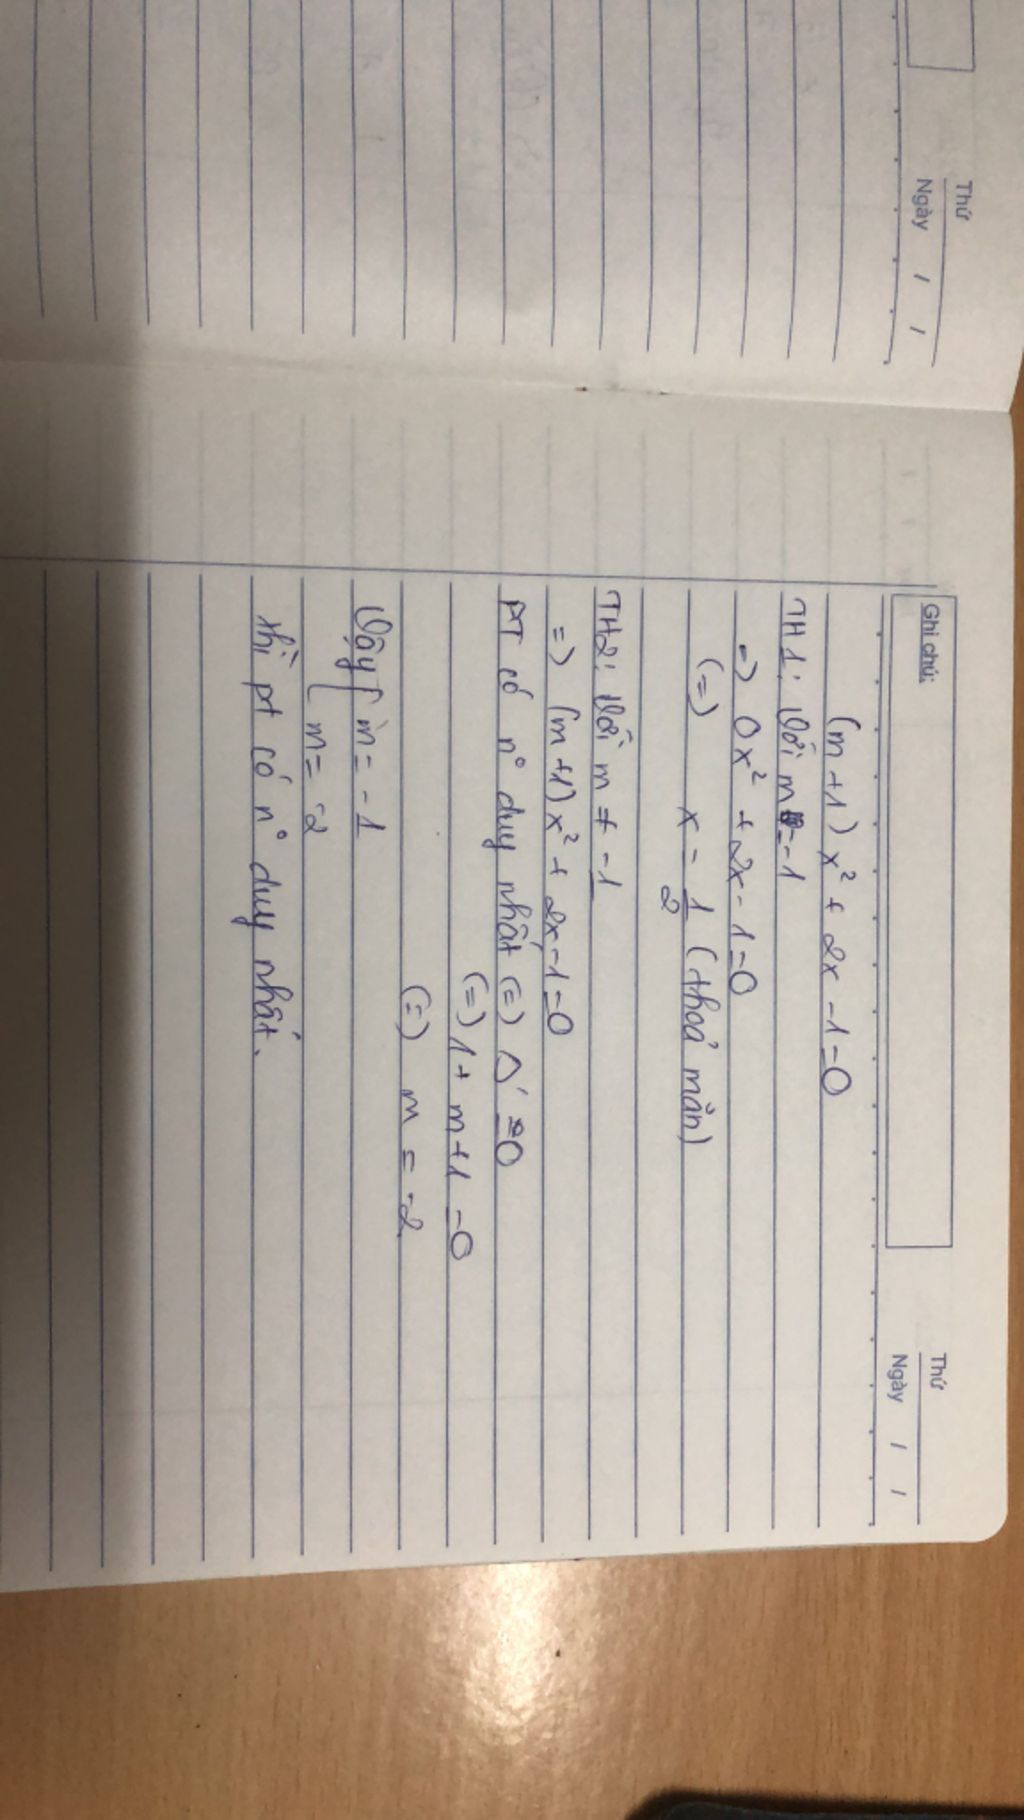 Thứ
Ngày / /
Ghi chú:
Thứ
Ngày / /
(m+1)x² + 2x - 1 = 0
TH1: Với m = -1
=) 0x² + 2x - 1 = 0
(=) x = 1/2 (thoả mãn)
TH2: Với m ≠ -1
=) (m+1)x² + 2x - 1 = 0
PT có n° duy nhất (=) Δ' = 0
(=) 1 + m + 1 = 0
(=) m = -2
Vậy [ m = -1
m = -2
thì pt có n° duy nhất.